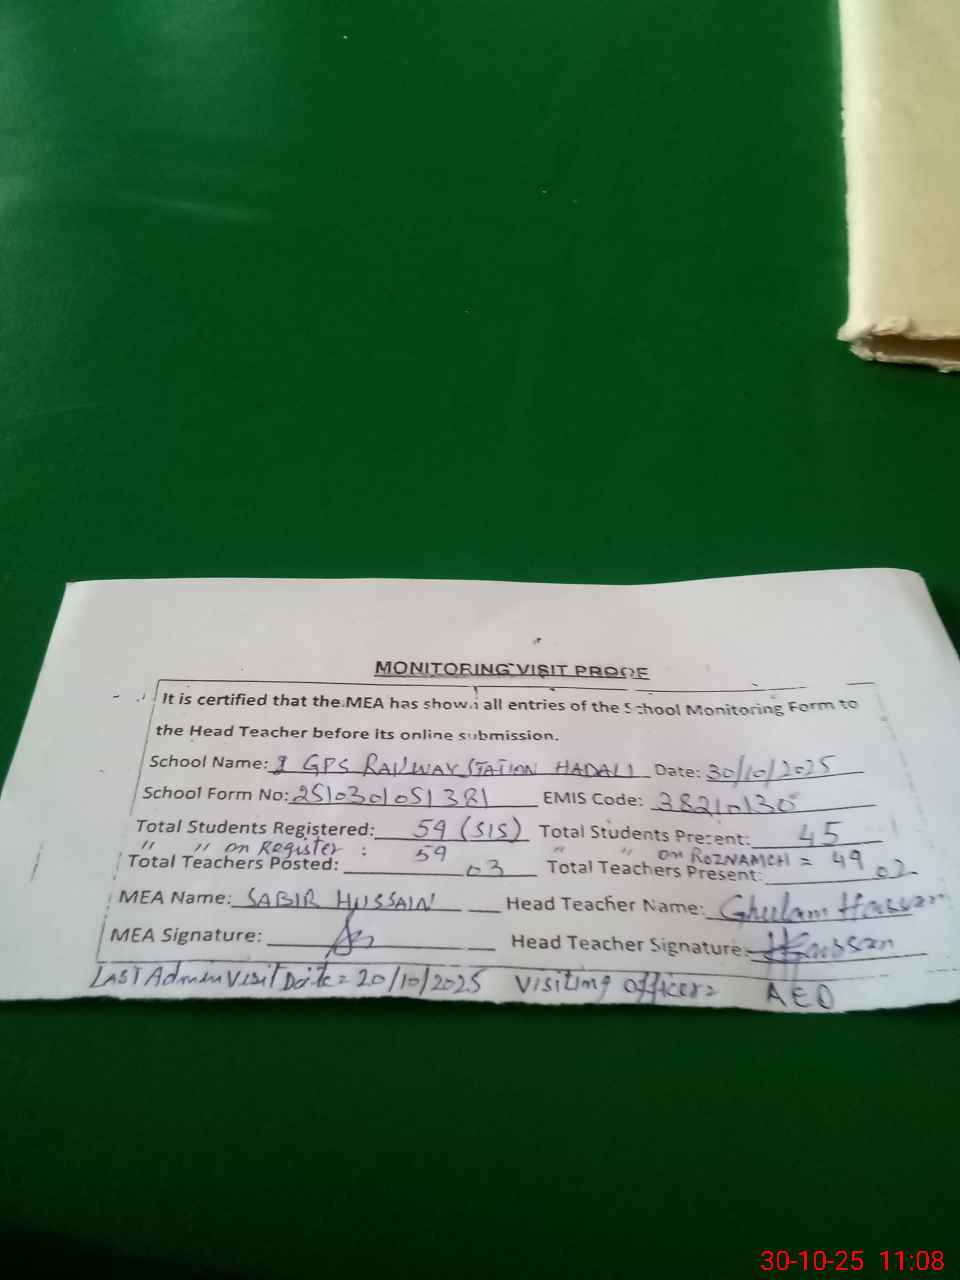 MONITORING VISIT PROOF
It is certified that the MEA has shown all entries of the School Monitoring Form to
the Head Teacher before its online submission.
School Name: GPS RAILWAY STATION HADALI Date: 30/10/2025
School Form No: 2510301051381 EMIS Code: 38210130
Total Students Registered: 59 (SIS) Total Students Present: 45
" " on Register : 59 " " on ROZNAMCH = 49
Total Teachers Posted: 03 Total Teachers Present: 02
MEA Name: SABIR HUSSAIN Head Teacher Name: Ghulam Hassan
MEA Signature: Head Teacher Signature: Hassan
LAST Admin Visit Date = 20/10/2025 Visiting officer = AEO
30-10-25 11:08